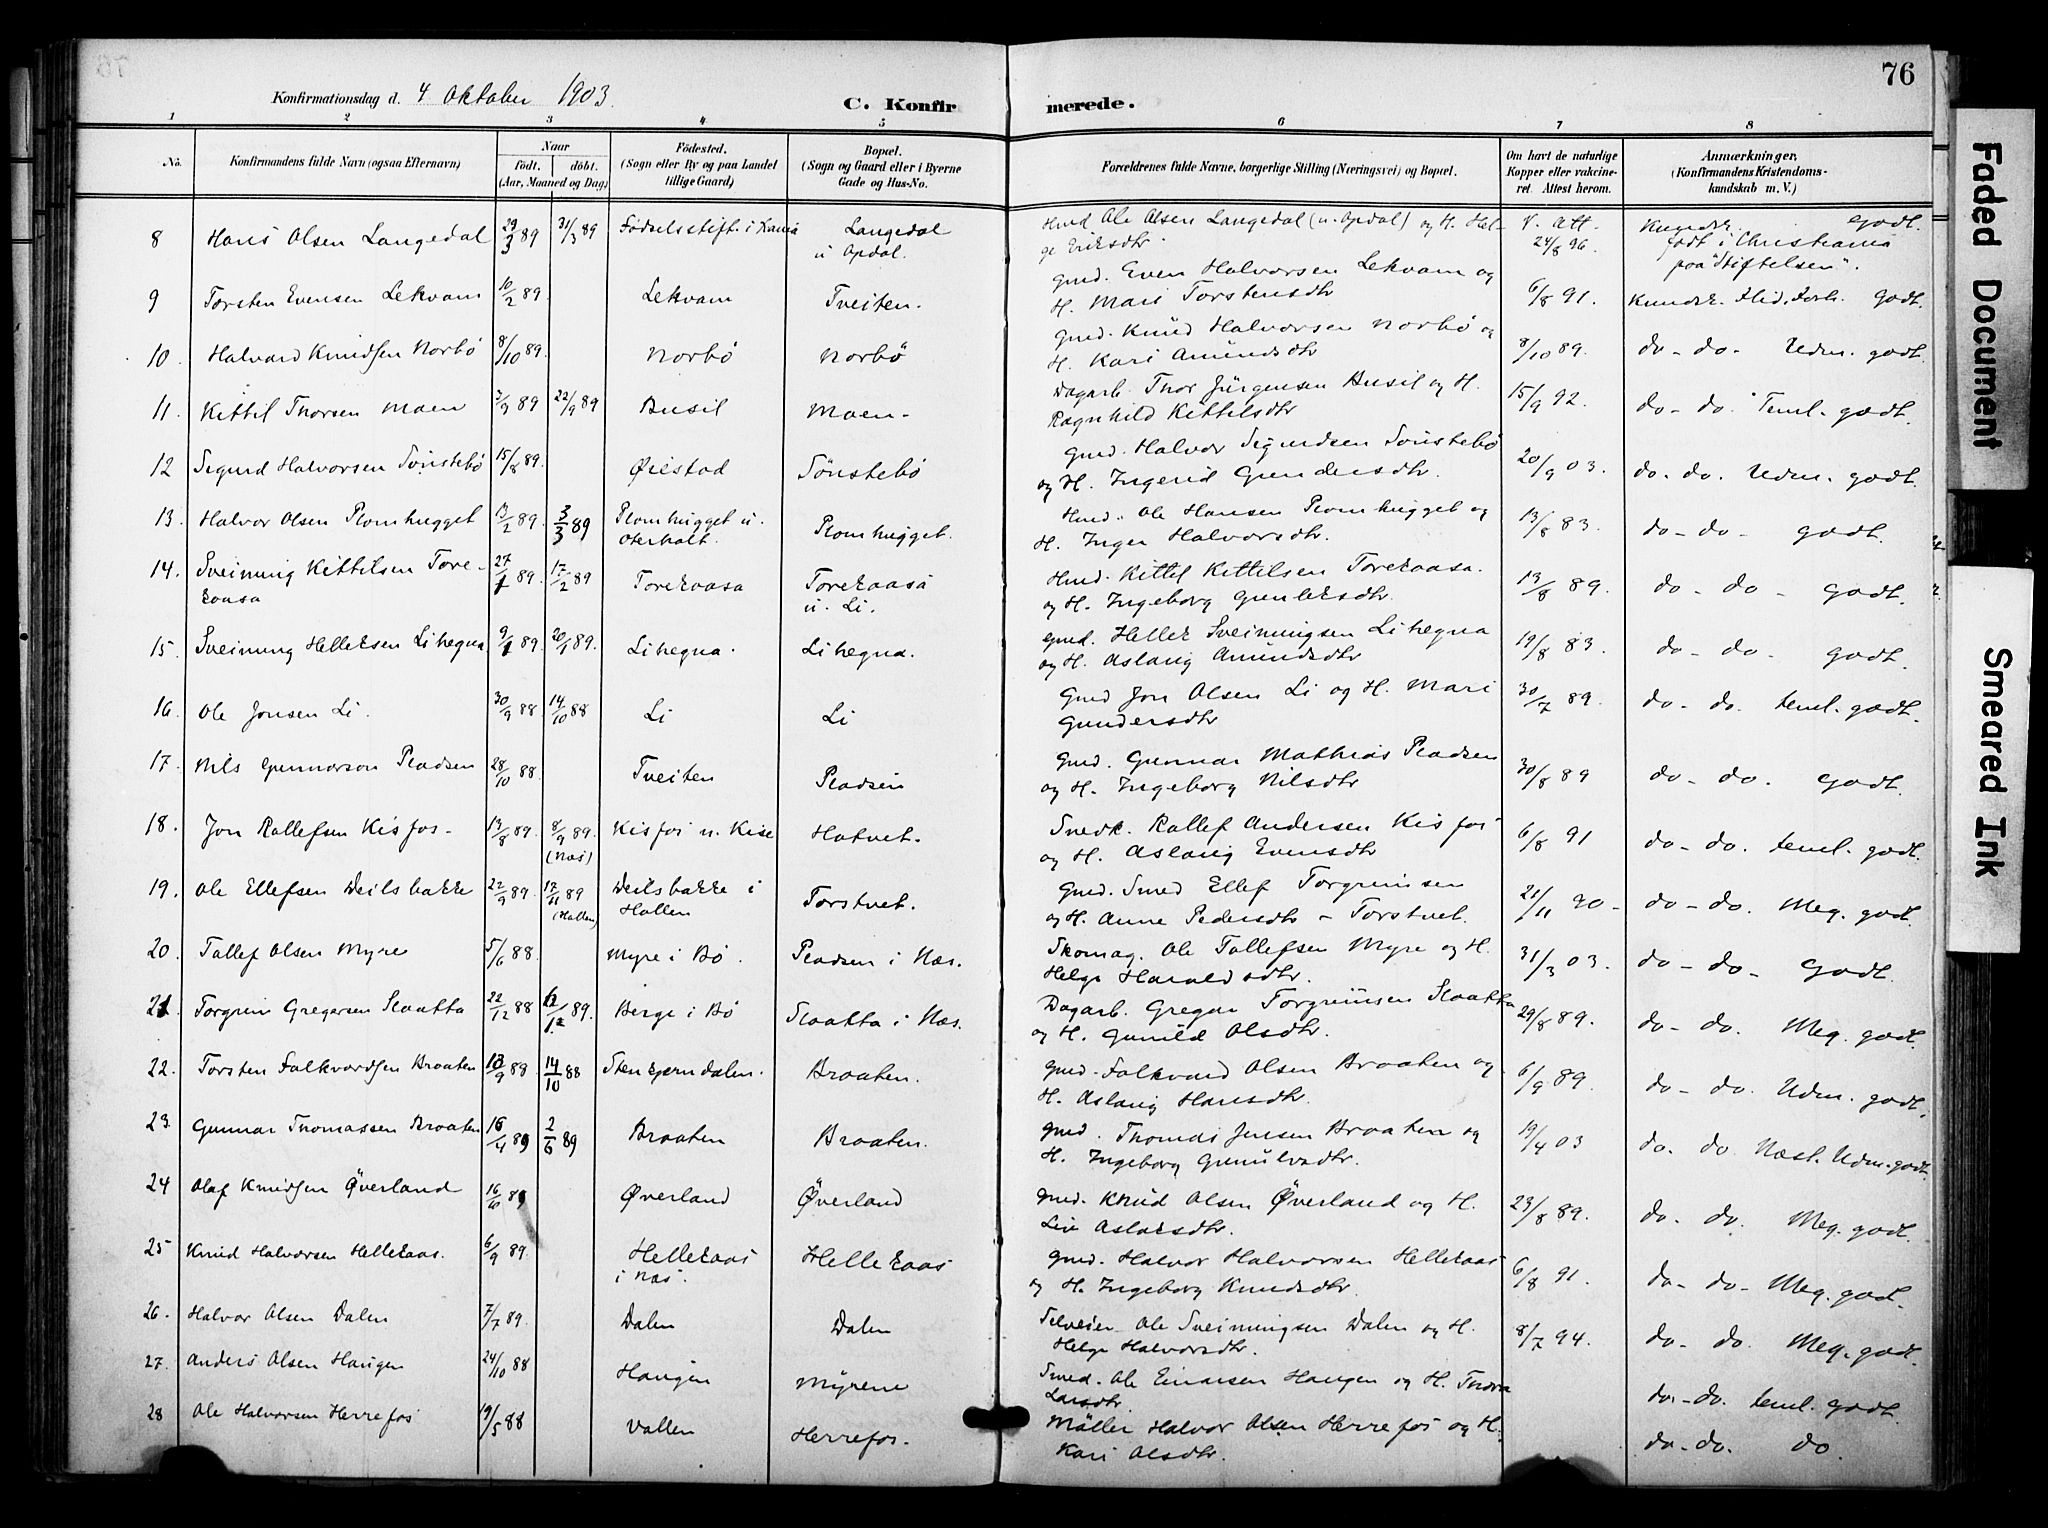 76
Konfirmationsdag d. 4 Oktober 1903.
C. Konfirmerede.
1 2 3 4 5 6 7 8
No. Konfirmandens fulde Navn (ogsaa Efternavn) Naar født. døbt. (Aar, Maaned og Dag) Fødested. (Sogn eller By og paa Landet tillige Gaard) Bopæl. (Sogn og Gaard eller i Byerne Gade og Hus-No. Forældrenes fulde Navne, borgerlige Stilling (Næringsvei) og Bopæl. Om havt de naturlige Kopper eller vakcineret. Attest herom. Anmærkninger, (Konfirmandens Kristendomskundskab m. V.)
8 Hans Olsen Langedal 29/3 89 31/3 89 Fødselsstift. i Xania Langedal u Opdal. Hmd. Ole Olsen Langedal (u. Opdal) og H. Helge Eriksdtr. V. Att. 24/8 96. godt. født i Christiania paa "Stiftelsen".
9 Torsten Evensen Lekvam 10/2 89. Lekvam Tveiten. Gmd. Even Halvorsen Lekvam og H. Mari Torstensdtr 6/8 91. Kundsk. Flid. Forh. Godt.
10. Halvard Knudsen Norbö 8/10 89. Norbö Norbö Gmd. Knud Halvorsen Norbö og H. Kari Amundsdtr 8/10 89. do - do - Udm. godt.
11. Kittil Thorsen Moen 3/9 89 22/9 89 Busil Moen - Dagarb. Thor Jörgensen Busil og H. Ragnhild Kittilsdtr 15/9 92. do - do. Teml. godt.
12 Sigurd Halvorsen Sönstebö 15/8 89. Øiestad Sönstebö Gmd. Halvor Sigurdsen Sönstebö og H. Ingerid Gundersdtr. 20/9 03. do. do. Udm. godt.
13. Halvor Olsen Plomhugget 13/2 89. 3/3 89 Plomhugget u. Oterholt. Plomhugget. Hmd. Ole Hansen Plomhugget og H. Inger Halvorsdtr. 13/8 83. do - do - godt.
14. Sveinung Kittilsen Torekaasa 27/1 89. 17/2 89 Torekaasa Torekaasa u. Li. Hmd. Kittil Kittilsen Torekaasa. og H. Ingeborg Gunleksdtr. 13/8 89. do - do - godt.
15. Sveinung Helleksen Lihegna 9/1 89. 20/1 89. Lihegna. Lihegna. Gmd. Hellek Sveinungsen Lihegna og H. Aslaug Amundsdtr 19/8 83. do - do. godt.
16. Ole Jonsen Li. 30/9 88 14/10 88 Li Li Gmd Jon Olsen Li og H. Mari Gundersdtr 30/7 89. do - do. teml. godt.
17. Nils Gunnarson Pladsen 28/10 88. Tveiten Pladsen Gmd. Gunnar Mathias Pladsen og H. Ingeborg Nilsdtr 30/8 89 do - do. godt.
18. Jon Rollefsen Kisfos - 13/8 89. 8/9 89. (Næs) Kisfos u. Kise Hatvet. Snedk. Rollef Andersen Kisfos og H. Aslaug Evensdtr 6/8 91 do - do. teml. godt.
19. Ole Ellefsen Deilsbakke 22/9 89. 17/11 89 (Hollen) Deilsbakke i Hollen Torstvet. Gmd. Smed Ellef Torgrimsen og H. Anne Pedersdtr - Torstvet. 21/11 90 - do - do. Meg. godt.
20. Tallef Olsen Myre 5/6 88. Myre i Bö. Pladsen i Næs. Skomag. Ole Tallefsen Myre og H. Helge Haraldsdtr. 31/3 03. do - do - Godt.
21. Torgrim Gregersen Slaatta 22/12 88 Berge i Bö Slaatta i Næs. Dagarb. Gregar Torgrimsen Slaatta og H. Gunild Olsdtr. 29/8 89. do - do. Meg. godt.
22. Torsten Folkvardsen Braaten 14/10 88 Stenbjørndalen. Braaten. Gmd. Folkvard Olsen Braaten og H. Aslaug Hansdtr. 6/9 89. do - do. Udm. godt.
23. Gunnar Thomassen Braaten 16/4 89 2/6 89 Braaten Braaten. Gmd. Thomas Jensen Braaten og H. Ingeborg Gunulvsdtr. 19/4 03 do. do. Næst. Udm. godt.
24 Olaf Knudsen Överland 16/10 89 Øverland Överland Gmd. Knud Olsen Øverland og H. Liv Aslaksdtr. 23/8 89. do. do. Meg. godt.
25 Knud Halvorsen Hellekaas. 6/9 89. Hellekaas i Næs. Hellekaas Gmd. Halvor Halvorsen Hellekaas og H. Ingeborg Knudsdtr. 6/8 91. do - do - Meg. godt.
26. Halvor Olsen Dalen 7/7 89. Dalen Dalen Selveier Ole Sveinungsen Dalen og H. Helge Halvorsdtr. 8/7 94. do. do. Meg. godt.
27. Anders Olsen Haugen 24/10 88 Haugen Myrene Smed. Ole Einarsen Haugen og H. Thora Larsdtr. do. - do. teml. godt.
28 Ole Halvorsen Herrefos 19/5 88 Vallen Herrefos. Möller Halvor Olsen Herrefos og H. Kari Olsdtr. do - do. do
Faded Document
Smeared Ink